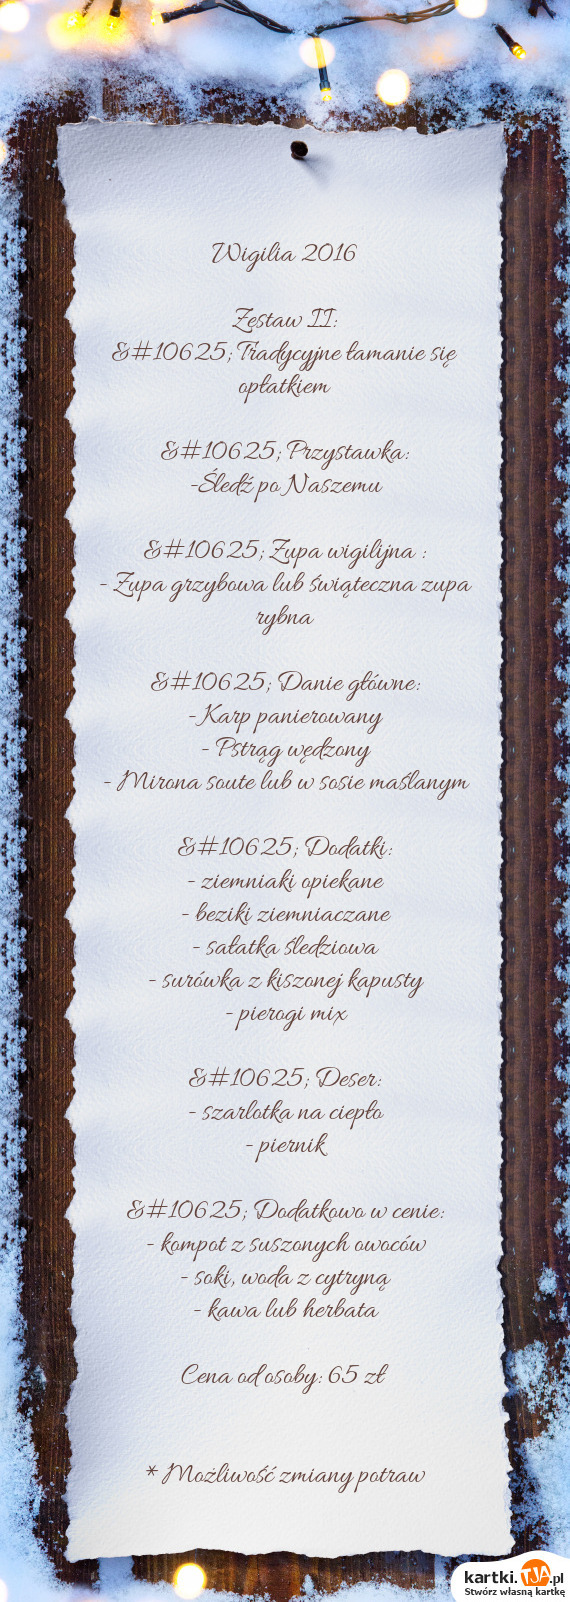 Wigilia 2016
Zestaw II:
&#10625; Tradycyjne łamanie się
opłatkiem
&#10625; Przystawka:
-Śledź po Naszemu
&#10625; Zupa wigilijna :
- Zupa grzybowa lub świąteczna zupa
rybna
&#10625; Danie główne:
- Karp panierowany
- Pstrąg wędzony
- Mirona soute lub w sosie maślanym
&#10625; Dodatki:
- ziemniaki opiekane
- beziki ziemniaczane
- sałatka śledziowa
- surówka z kiszonej kapusty
- pierogi mix
&#10625; Deser:
- szarlotka na ciepło
- piernik
&#10625; Dodatkowo w cenie:
- kompot z suszonych owoców
- soki, woda z cytryną
- kawa lub herbata
Cena od osoby: 65 zł
* Możliwość zmiany potraw
kartki.TJA.pl
Stwórz własną kartkę